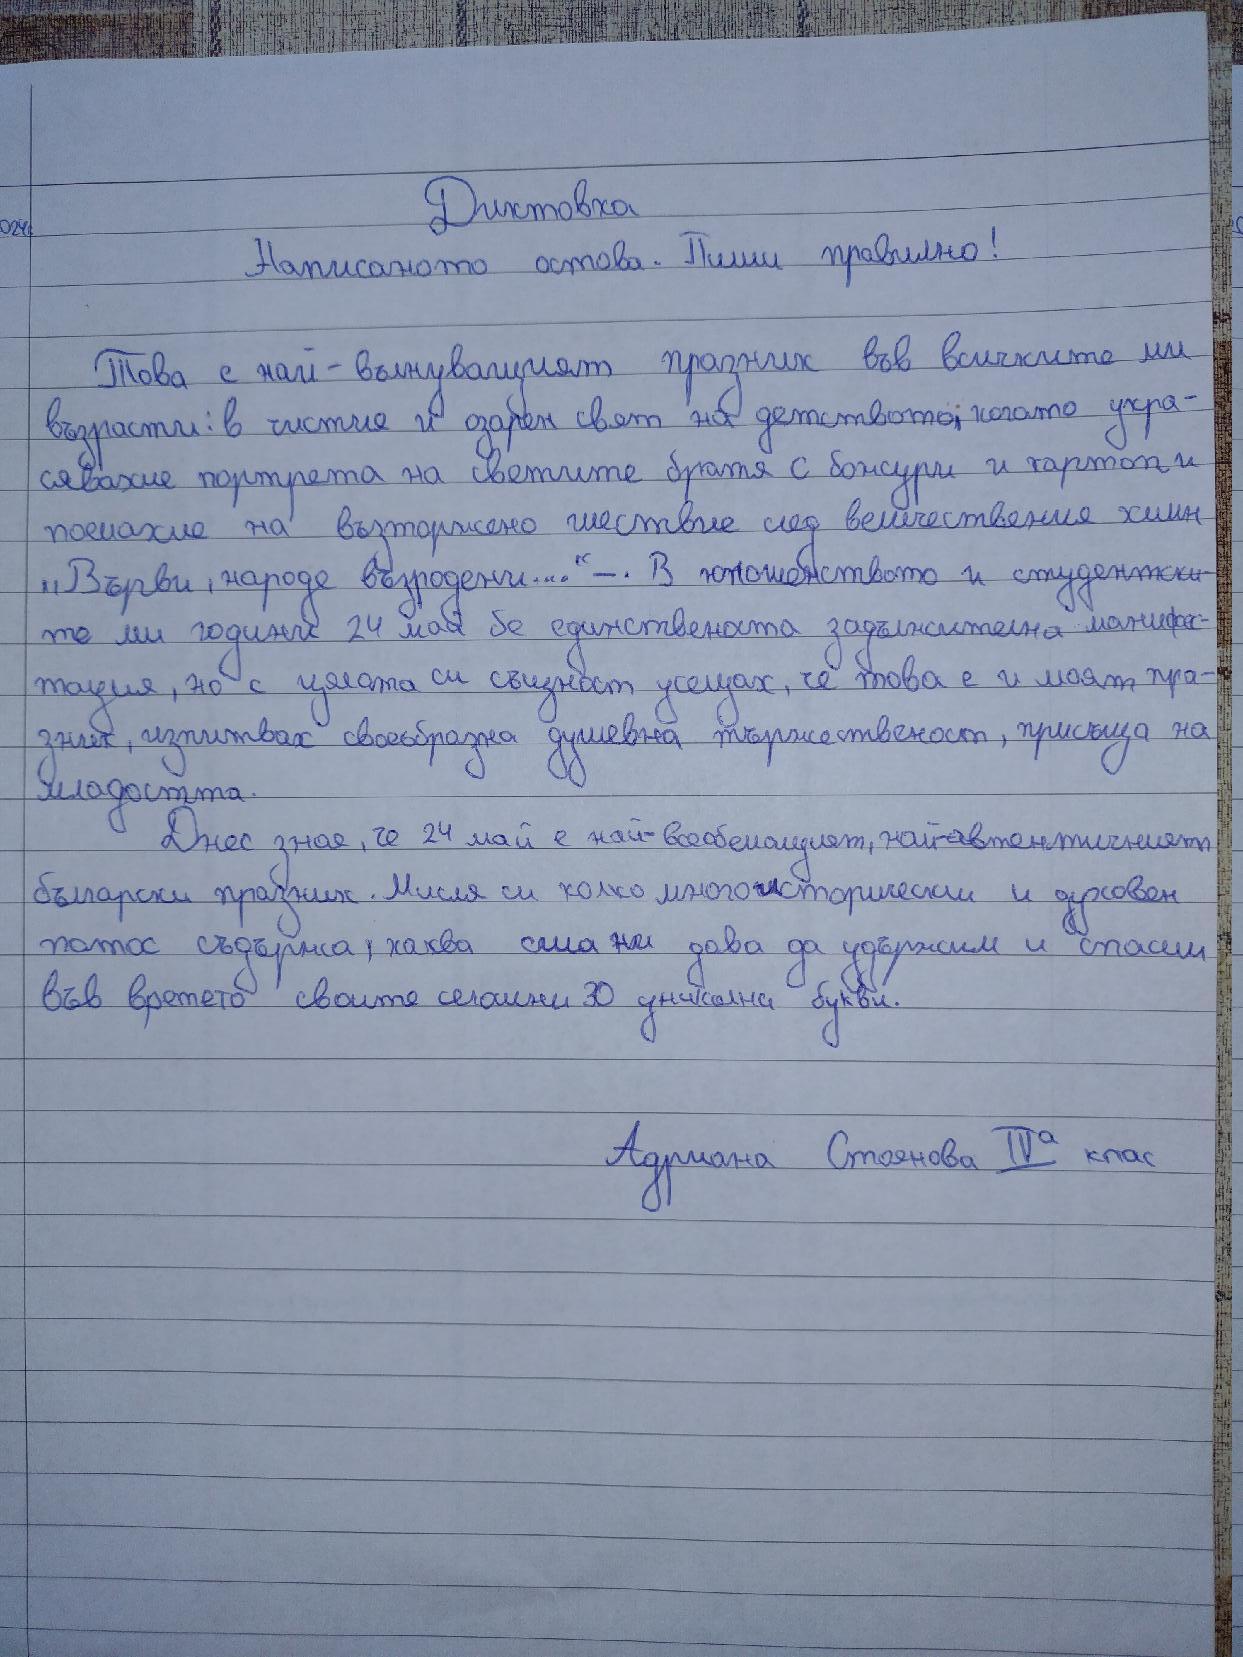 024
Диктовка
Написаното остава. Пиши правилно!
Това е най-вълнуващият празник във всичките ми
възрасти: в чистия и озарен свят на детството, когато укра-
сявахме портрета на светите братя с божури и картон и
поемахме на възторжено шествие след величествения химн
„Върви, народе възродени...“ –. В юношенството и студентски-
те ми години 24 май бе единствената задължителна манифес-
тация, но с цялата си същност усещах, че това е и моят пра-
зник, изпитвах своеобразна душевна тържественост, присъща на
младостта.
Днес зная, че 24 май е най-всеобемащият, най-автентичният
български празник. Мисля си колко много исторически и духовен
патос съдържа, каква сила ни дава да удържим и спасим
във времето своите сегашни 30 уникални букви.
Адриана Стоянова IVа клас